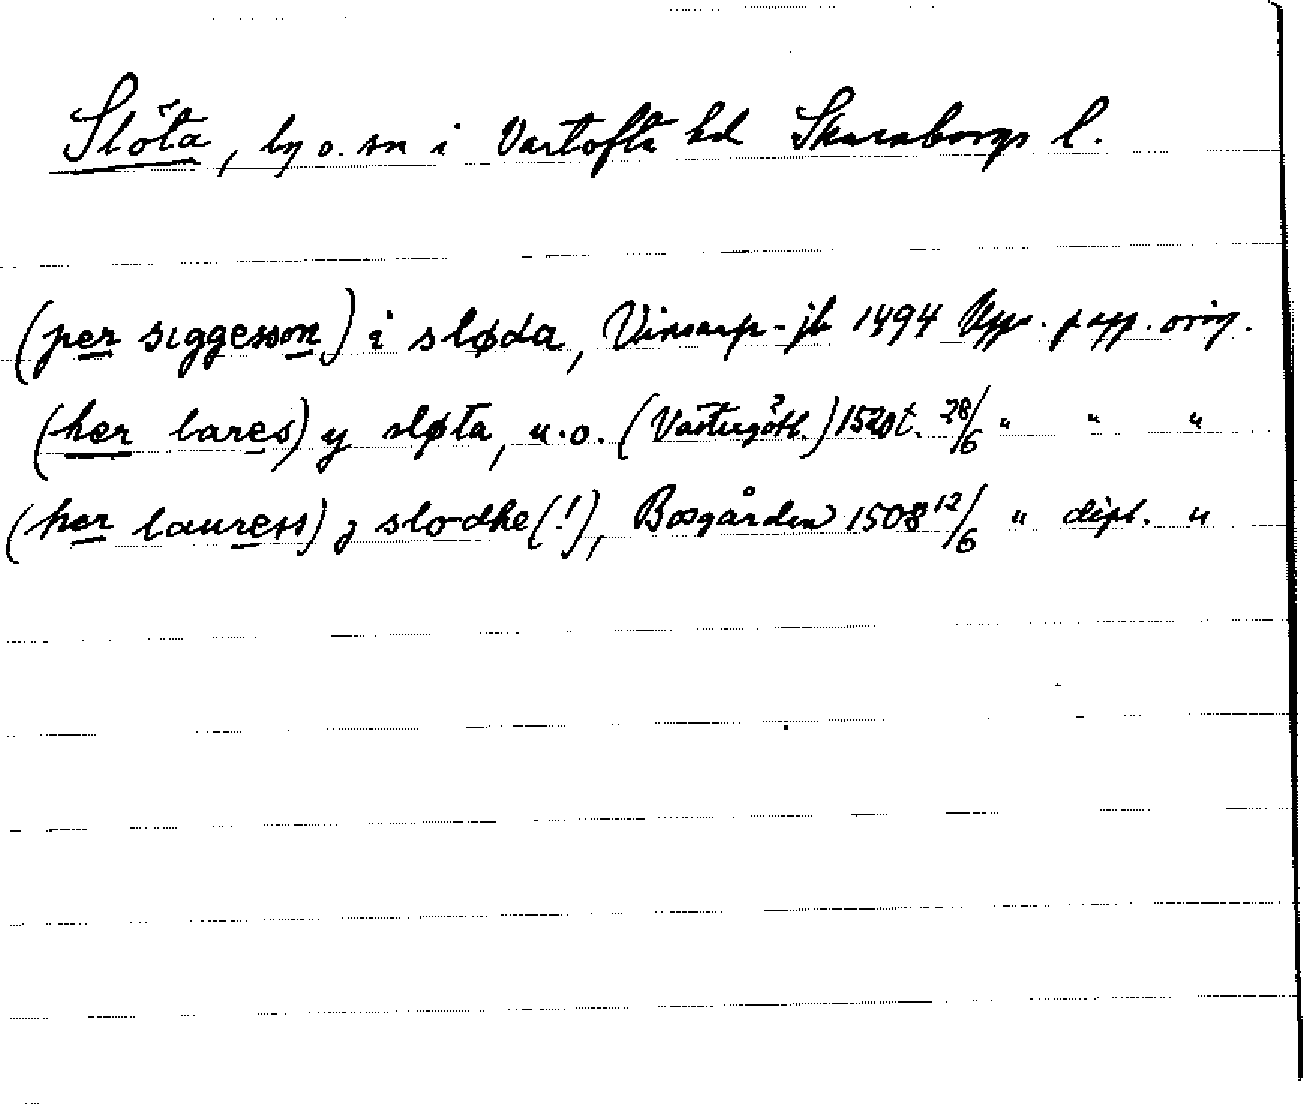 Slöta, by o. sn i Vartofta hd Skaraborgs l.
(per siggesson) i sløda, Vinsarp-jb 1494 Upps. papp. orig.
(her lares) y sløta, u.o. (Västergötl.?) 1520t. 28/6 " " "
(her lauress) j slodhe(!), Bosgården 1508 12/6 " dipl. "